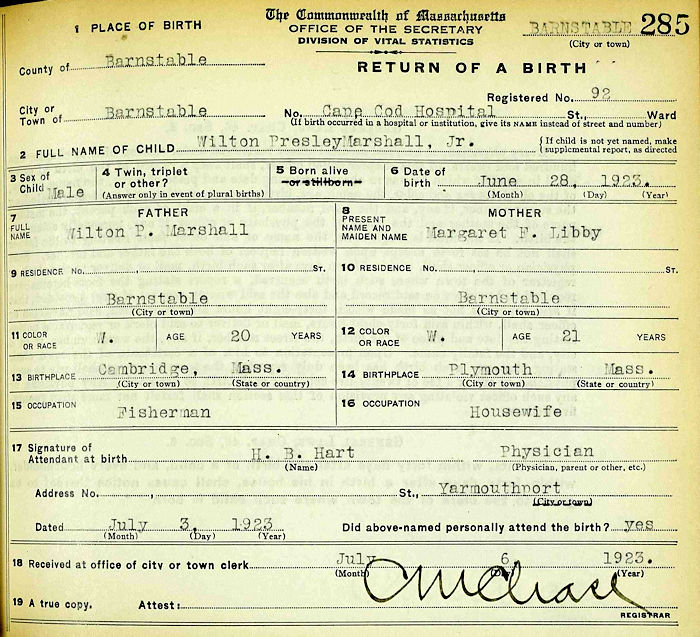 The Commonwealth of Massachusetts
OFFICE OF THE SECRETARY
DIVISION OF VITAL STATISTICS
RETURN OF A BIRTH
BARNSTABLE 285
(City or town)
1 PLACE OF BIRTH
County of Barnstable
Registered No. 92
City or Town of Barnstable No. Cape Cod Hospital St., Ward
(If birth occurred in a hospital or institution, give its NAME instead of street and number)
2 FULL NAME OF CHILD Wilton PresleyMarshall, Jr. { If child is not yet named, make supplemental report, as directed
3 Sex of Child Male 4 Twin, triplet or other? (Answer only in event of plural births) 5 Born alive or stillborn 6 Date of birth June 28, 1923.
(Month) (Day) (Year)
7 FATHER 8 MOTHER
FULL NAME Wilton P. Marshall PRESENT NAME AND MAIDEN NAME Margaret F. Libby
9 RESIDENCE No. , ST. 10 RESIDENCE No. , ST.
Barnstable Barnstable
(City or town) (City or town)
11 COLOR OR RACE W. AGE 20 YEARS 12 COLOR OR RACE W. AGE 21 YEARS
13 BIRTHPLACE Cambridge, Mass. 14 BIRTHPLACE Plymouth Mass.
(City or town) (State or country) (City or town) (State or country)
15 OCCUPATION Fisherman 16 OCCUPATION Housewife
17 Signature of Attendant at birth H. B. Hart Physician
(Name) (Physician, parent or other, etc.)
Address No. , St., Yarmouthport
(City or town)
Dated July 3, 1923 Did above-named personally attend the birth? yes
(Month) (Day) (Year)
18 Received at office of city or town clerk July 6, 1923.
(Month) (Day) (Year)
19 A true copy. Attest:
REGISTRAR